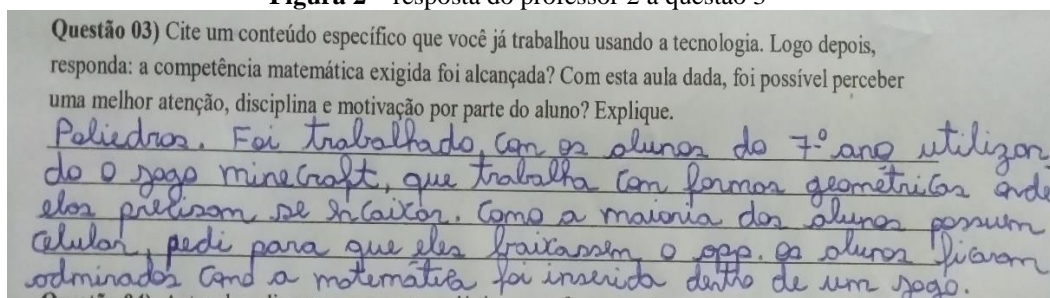 Figura 2 – resposta do professor 2 à questão 3
Questão 03) Cite um conteúdo específico que você já trabalhou usando a tecnologia. Logo depois,
responda: a competência matemática exigida foi alcançada? Com esta aula dada, foi possível perceber
uma melhor atenção, disciplina e motivação por parte do aluno? Explique.
Poliedros. Foi trabalhado, com os alunos do 7º ano utilizan
do o jogo minecraft, que trabalha com formas geométricas onde
elas precisam se encaixar. Como a maioria dos alunos possuem
celular, pedi para que eles baixassem o app. os alunos ficaram
adminados como a matemática foi inserida dentro de um jogo.